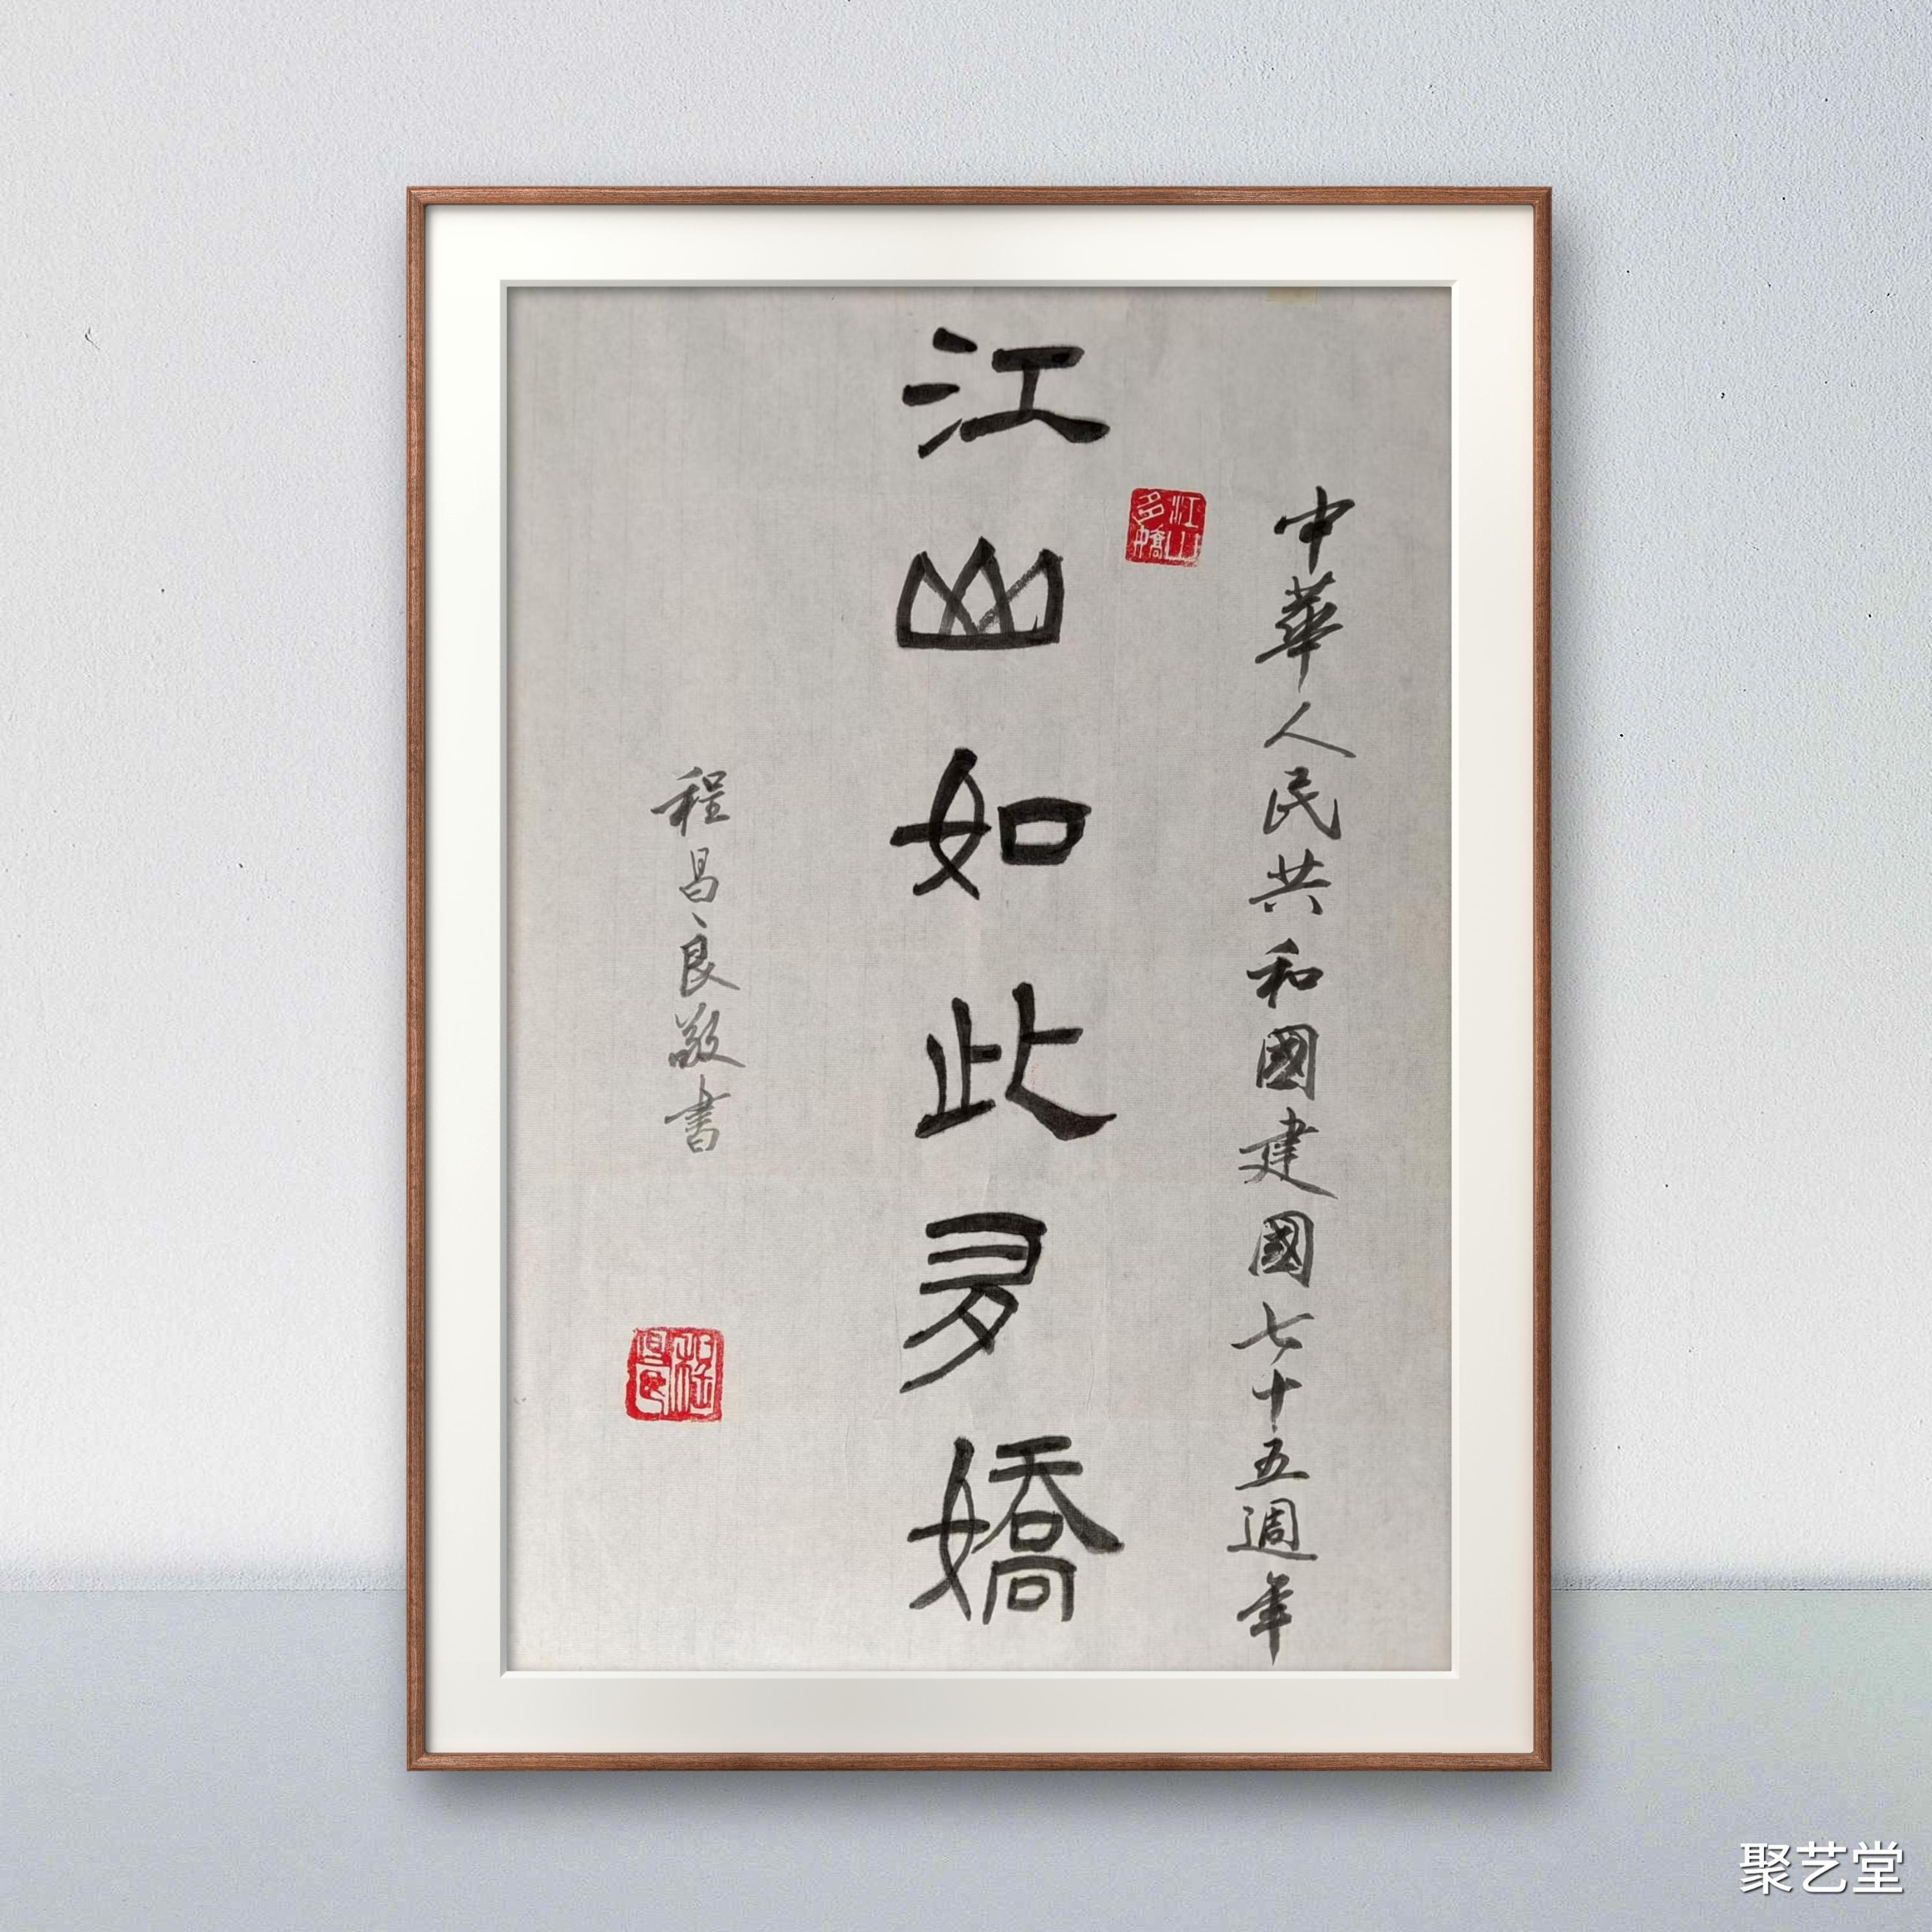 中華人民共和國建國七十五週年
江山如此多嬌
江山多嬌
程昌良敬書
程昌良
聚艺堂